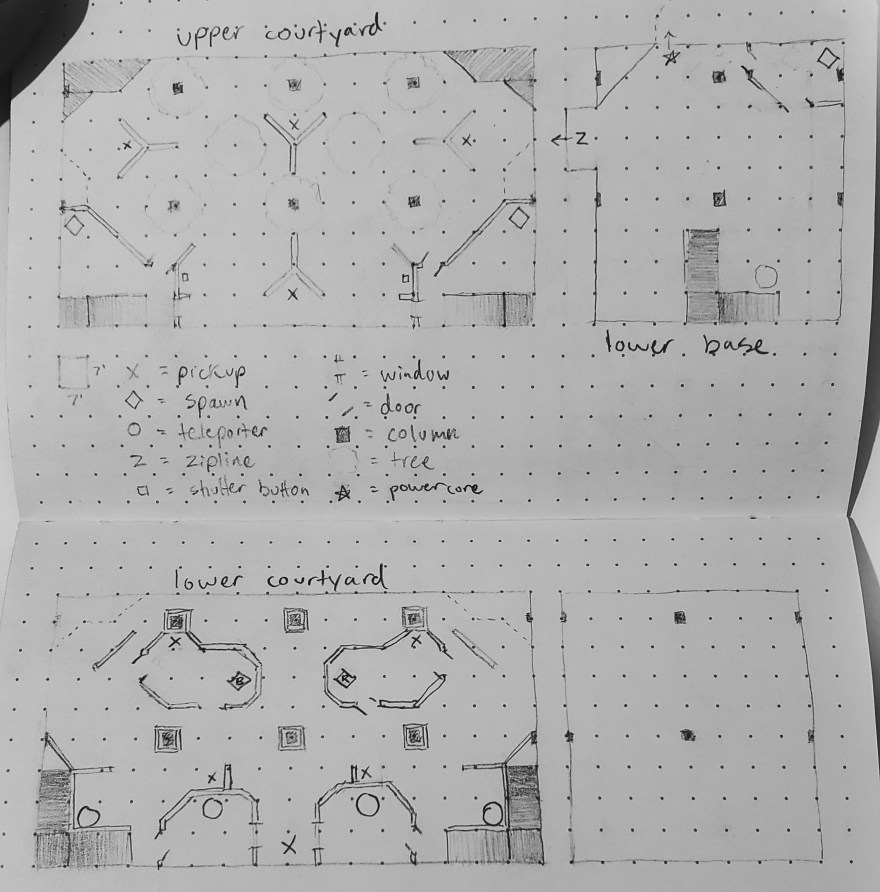 upper courtyard
x
x
x
x
← Z
lower base
7'
7'
X = pickup
◇ = spawn
O = teleporter
Z = zipline
□ = shutter button
= window
= door
= column
= tree
☆ = powercore
lower courtyard
x
x
B
R
x
x
x